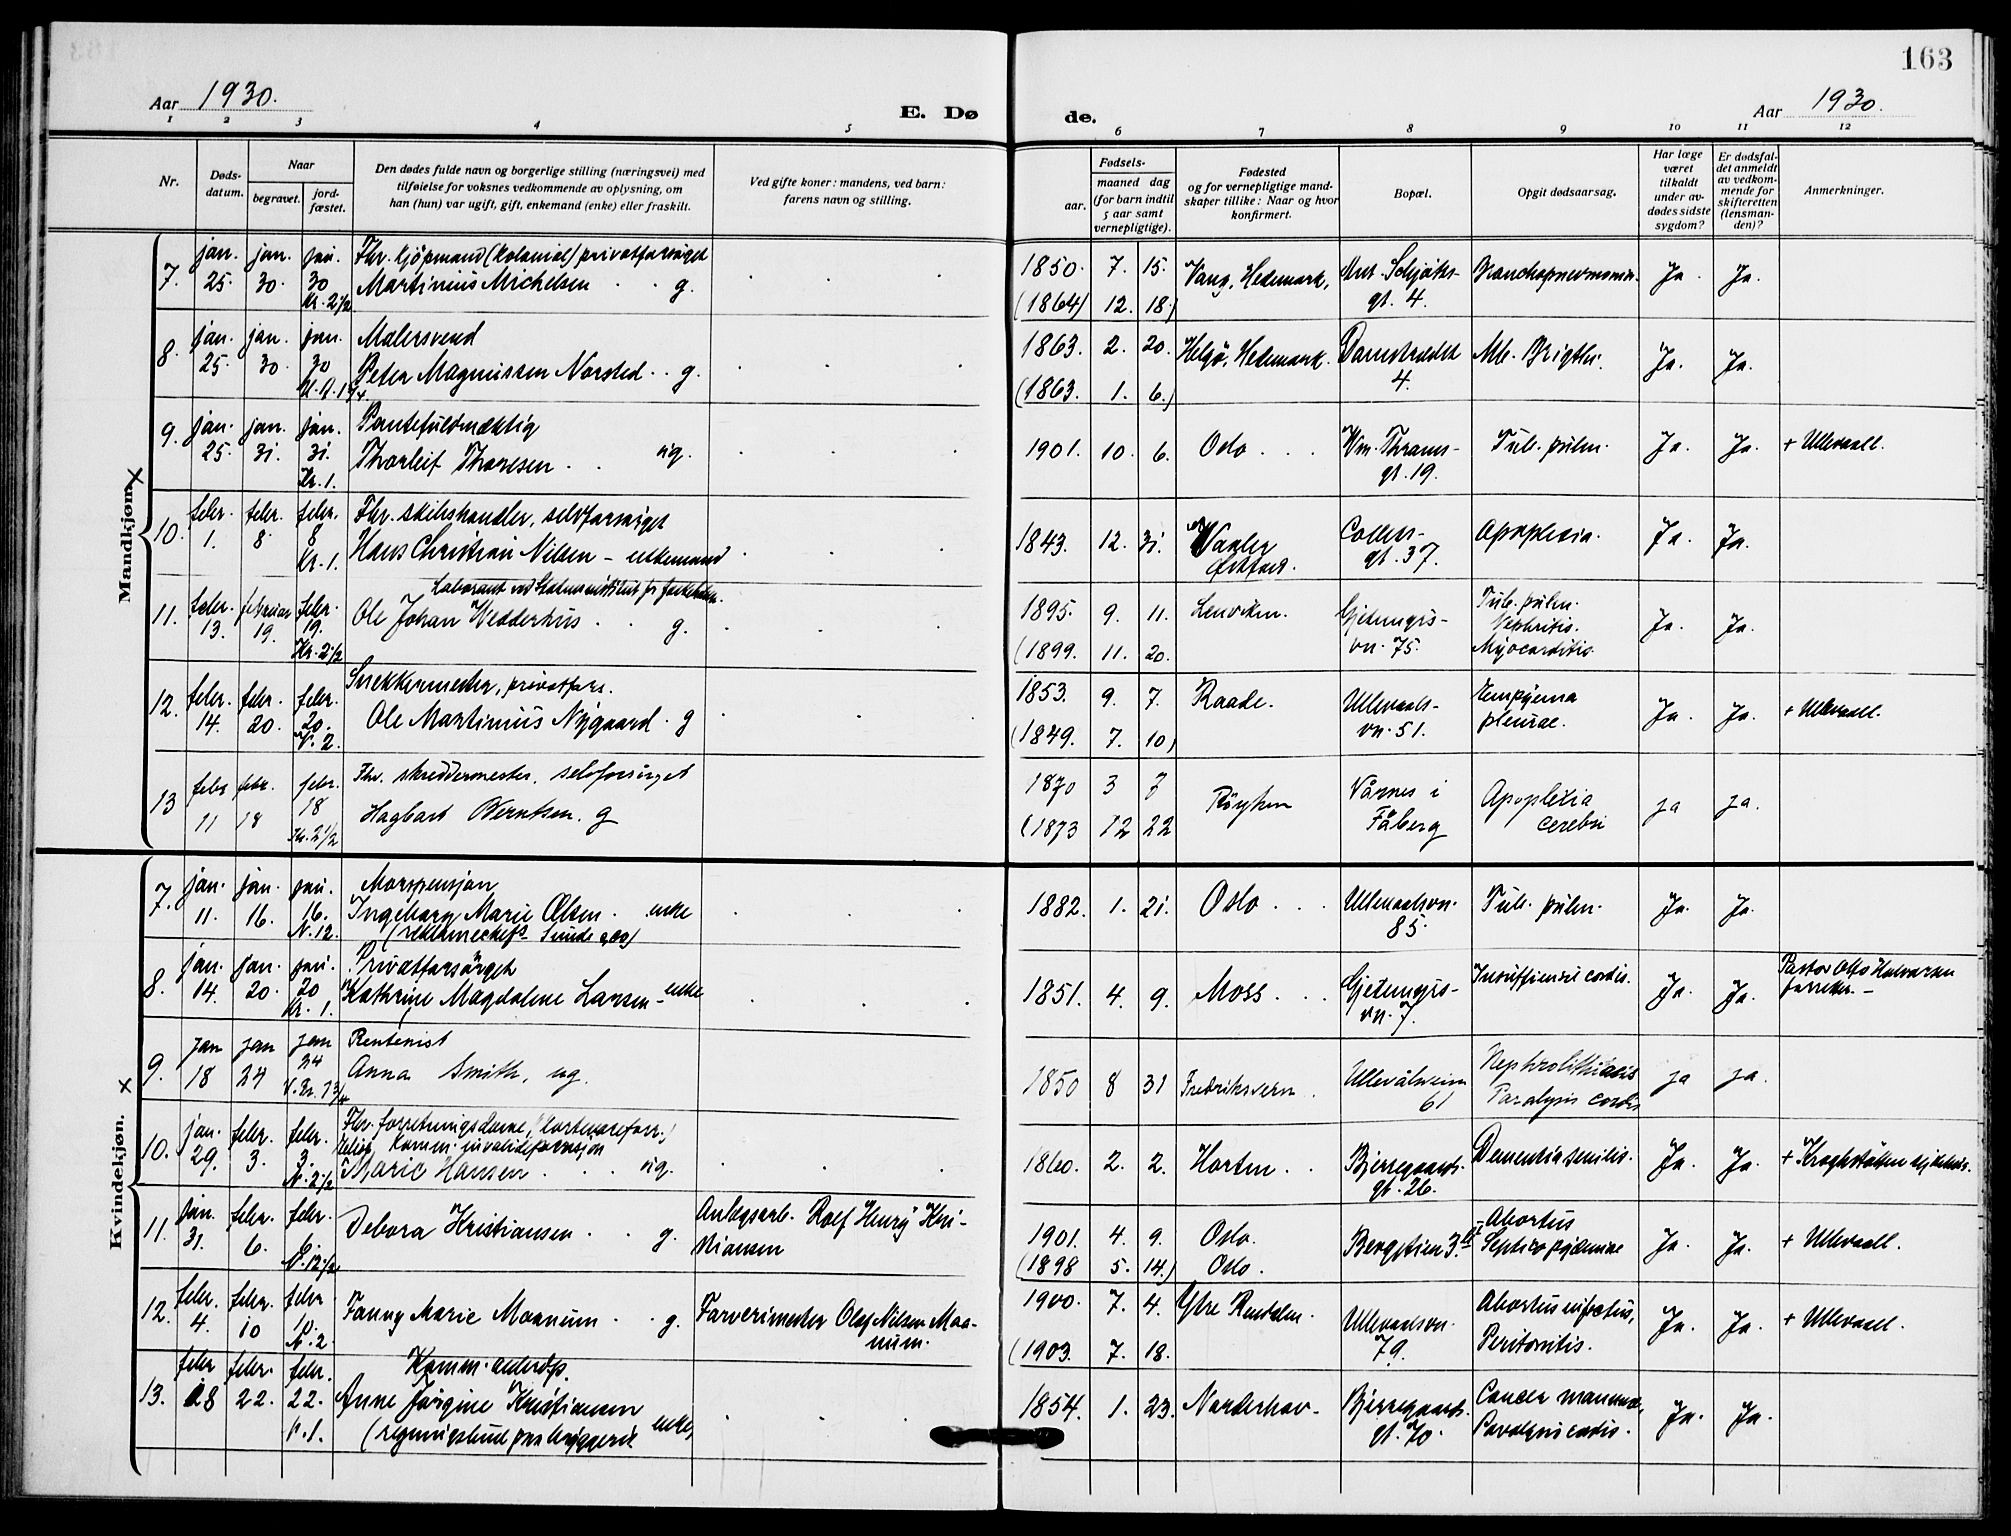 163
Aar 1930.
E. Dø
de.
Aar 1930.
1 2 3 4 5 6 7 8 9 10 11 12
Nr.
Døds-
datum.
Naar
begravet.
jord-
fæstet.
Den dødes fulde navn og borgerlige stilling (næringsvei) med
tilføielse for voksnes vedkommende av oplysning, om
han (hun) var ugift, gift, enkemand (enke) eller fraskilt.
Ved gifte koner: mandens, ved barn:
farens navn og stilling.
Fødsels-
aar.
maaned dag
(for barn indtil
5 aar samt
vernepligtige).
Fødested
og for vernepligtige mand-
skaper tillike: Naar og hvor
konfirmert.
Bopæl.
Opgit dødsaarsag.
Har læge
været
tilkaldt
under av-
dødes sidste
sygdom?
Er dødsfal-
det anmeldt
av vedkom-
mende for
skifteretten
(lensman-
den)?
Anmerkninger.
Mandkjøn.
jan. jan. jan. Fhv. kjøpmand (kolonial) privatforsørget
7. 25. 30. 30 Martinius Michelsen g. 1850. 7. 15. Vang, Hedemark. Ant. Schjøths- Bronchopneumonia. Ja. Ja.
Kr. 2 1/2 (1864) 12. 18.) gt. 4.
jan. jan. jan. Malersvend
8. 25. 30. 30 Peter Magnussen Norsted g. 1863. 2. 20. Helgø, Hedemark. Damstrædet Mb. Brigthi. Ja. Ja.
(1863. 1. 6.) 4.
jan. jan. jan. Pantefuldmæktig
9. 25. 31. 31. Thorleif Thoresen ug. 1901. 10. 6. Oslo Vm. Thranes- Tub. pulm. Ja. Ja. + Ullevaal.
Kr. 1. gt. 19.
febr. febr. febr. Fhv. skibshandler, selvforsørget
10. 1. 8. 8 Hans Christian Nilsen - enkemand 1843. 12. 31. Vaaler Colletts- Apoplexia. Ja. Ja.
Kr. 1. Østfold. gt. 37.
Laborant ved Statens institut for folkehelsen.
11. febr. februar febr. Ole Johan Wedderhus g. 1895. 9. 11. Lenviken. Gjetemyrs- Tub. pulm.
13. 19. 19. Nephritis. Ja. Ja.
Kr. 2 1/2 (1899. 11. 20. vn. 75. Myocarditis.
Snekkermester, privatfors.
12. febr. febr. febr. Ole Martinius Nygaard g 1853. 9. 7. Raade. Ullevaals- Empyema
14. 20. 20. vn. 51. pleurae. Ja. Ja. + Ullevaal.
V. 2. (1849. 7. 10)
13 febr febr. febr. Fhv. skreddermester, selvforsørget
11 18 18 Hagbart Berntsen. g 1870 3 7 Røyken Vårnes i Apoplexia ja ja.
Kr. 2 1/2 (1873 12 22 Fåberg cerebri
Kvindekjøn.
7. jan. jan. jan. Morspensjon
11. 16. 16. Ingeborg Marie Olsen enke 1882. 1. 21. Oslo Ullevaalsvn. Tub. pulm. Ja. Ja.
N. 12. 85.
8. jan. jan. jan. Privatforsørget
14. 20. 20 Kathrine Magdalene Larsen - enke 1851. 4. 9. Moss Gjetemyrs- Insufficiensi cordis. Ja. Ja. Pastor Olfs Halvorsen
Kr. 1. vn. 7. forretter. -
9. jan jan jan Rentenist
18 24 24 Anna Smith, ug. 1850 8 31 Fredriksvern Ullevålsveien Nephrolithiasis ja ja.
V. Kr. 1 3/4 61 Paralysis cordis
10. jan. febr. febr. Fhv. forretningsdame,
29. 3. 3. Komm. invalidepensjon
N. 2 1/2 Marie Hansen ug. 1860. 2. 2. Horten Bjerregaards- Dementia senilis. Ja. Ja. + Kroghstøtten sykehus.
gt. 26.
11. jan. febr. febr. Debora Kristiansen g. Anlegsarb. Rolf Henry Kri-
31. 6. 6. stiansen
N. 12 1/2 1901. 4. 9. Oslo. Bergstien 3. Abortus
Septico pyæmiae Ja. Ja. + Ullevaal.
(1898 5. 14.) Oslo.
12. febr. febr. febr Fanny Marie Moanum g. Farverimester Olaf Nilsen Moa-
4. 10 10. num.
N. 2 1900. 7. 4. Ytre Rendalen. Ullevaalsvn. Abortus infectus, Ja. Ja. + Ullevaal.
(1903. 7. 18. 79. Peritonitis.
13. febr febr. febr. Komm. alderdp.
18 22. 22. Anne Jørgine Kristiansen enke
V. 1. 1854. 1. 23. Norderhov Bjerregaards- Cancer mammae, Ja. Ja.
gt. 70. Paralysis cordis.